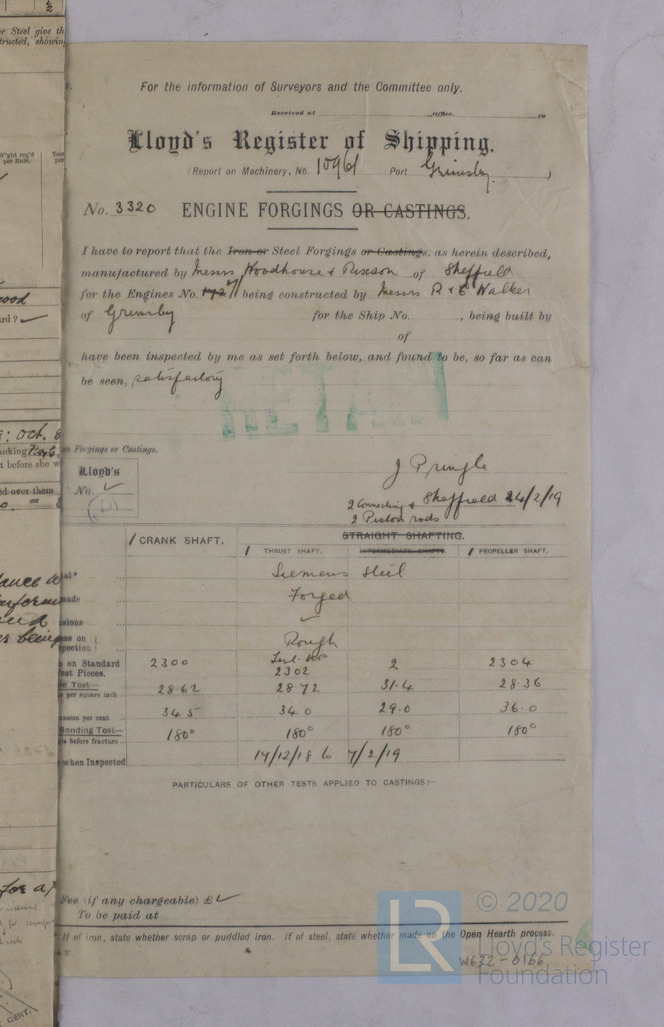 For the information of Surveyors and the Committee only.
Received at Office 19
Lloyd's Register of Shipping.
(Report on Machinery, No. Port Grimsby.)
No. 3320 ENGINE FORGINGS OR CASTINGS.
I have to report that the Iron or Steel Forgings or Castings, as herein described,
manufactured by Messrs Woodhouse & of Sheffield
for the Engines No. being constructed by Messrs R & C Walker
of Grimsby for the Ship No. , being built by
of
have been inspected by me as set forth below, and found to be, so far as can
be seen, satisfactory
on Forgings or Castings.
Lloyd's
No. ✓
J Pringle
Sheffield 24/2/19
2 Connecting &
2 Piston rods
STRAIGHT SHAFTING.
1 CRANK SHAFT. 1 THRUST SHAFT. INTERMEDIATE SHAFTS. 1 PROPELLER SHAFT.
Siemens Steel
Forged
✓
Rough
on Standard
Test Pieces. 2300 Test No 2302 2 2304
Test—
per square inch 28.62 28.72 31.4 28.36
per cent 34.5 34.0 29.0 36.0
Bending Test—
before fracture 180° 180° 180° 180°
when Inspected 17/12/18 to 7/2/19
PARTICULARS OF OTHER TESTS APPLIED TO CASTINGS:—
Fee (if any chargeable) £ ✓
To be paid at
* If of iron, state whether scrap or puddled iron. If of steel, state whether made on the Open Hearth process.
© 2020
LR
Lloyd's Register
Foundation
W632-0166